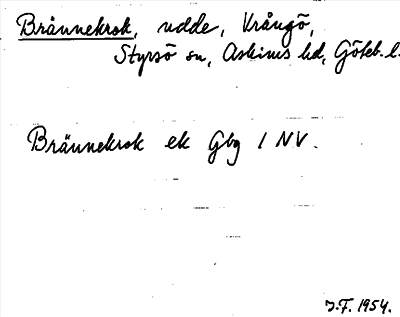 Brännekrok, udde, Vrångö,
Styrsö sn, Askims hd, Göteb. l.
Brännekrok ek Gbg 1 NV.
J.F. 1954.